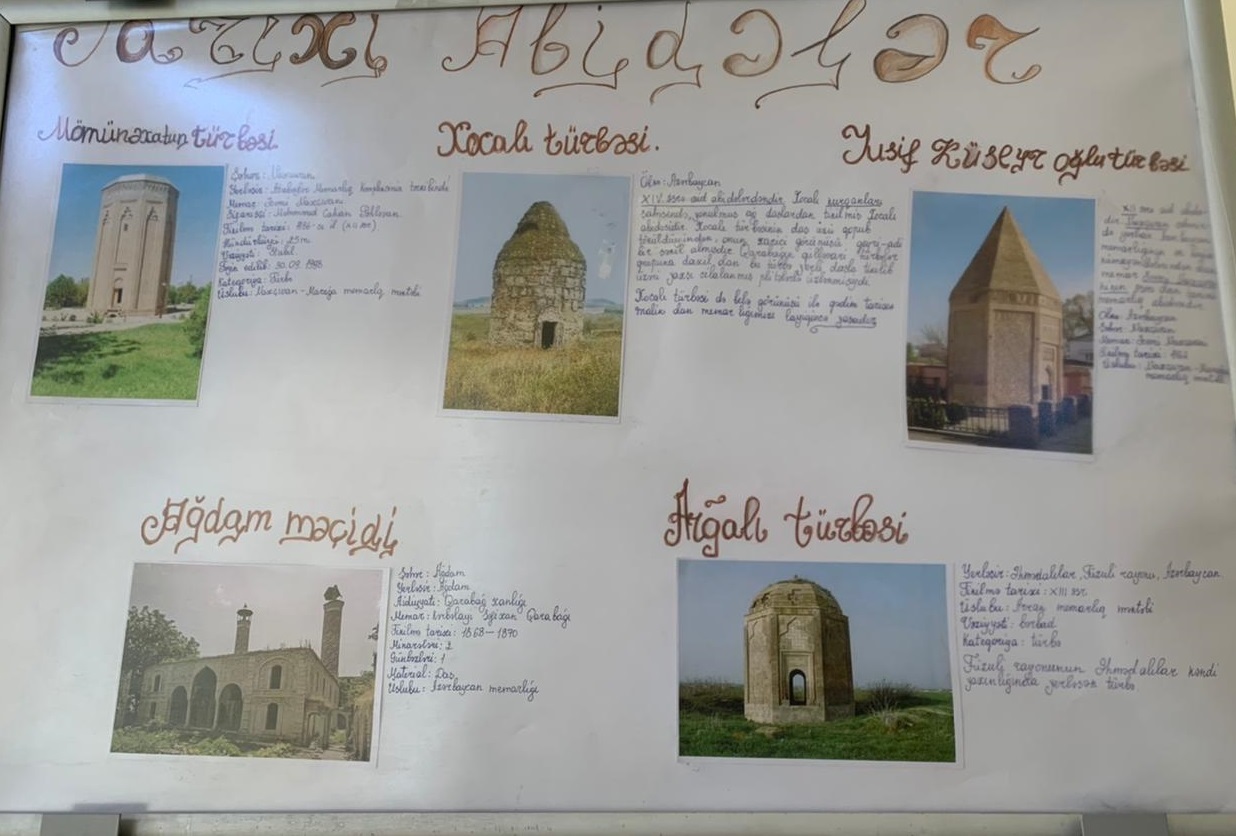 Tarixi Abidələr
Möminəxatun türbəsi
Şəhər: Naxçıvan
Yerləşir: Atabəylər Memarlıq kompleksinin tərkibində
Memar: Əcəmi Naxçıvani
Sifarişçi: Məhəmməd Cahan Pəhləvan
Tikilmə tarixi: 1186-cı il (XII əsr)
Hündürlüyü: 25 m
Vəziyyəti: Stabil
30.09.1998
Kateqoriya: Türbə
Üslubu: Naxçıvan-Marağa memarlıq məktəbi
Xocalı türbəsi.
Ölkə: Azərbaycan
XIV əsrə aid abidələrdəndir. Xocalı kurqanları
sahəsində, yonulmuş ağ daşlardan tikilmiş Xocalı
abidəsidir. Xocalı türbəsinin daş üzü qopub
töküldüyündən, onun xarici görünüşü qeyri-adi
bir şəkil almışdır. Qarabağın qülləvari türbələr
qrupuna daxil olan bu türbə yerli daşla tikilib
üzəri yaxşı cilalanmış plitələrlə üzlənmişdir.
Xocalı türbəsi də belə görünüşü ilə qədim tarixə
malik olan memarlığımıza layiqincə yaraşır.
Yusif Küseyr oğlu türbəsi
XII əsrə aid abidə-
dir.
memarlığının
memar
memarlıq abidəsidir.
Ölkə: Azərbaycan
Şəhər: Naxçıvan
Memar: Əcəmi Naxçıvani
Tikilmə tarixi: 1162
Üslubu: Naxçıvan-Marağa
memarlıq məktəbi
Ağdam məçidi
Şəhər: Ağdam
Yerləşir: Ağdam
Aidiyyəti: Qarabağ xanlığı
Memar: Kərbəlayi Səfixan Qarabaği
Tikilmə tarixi: 1868-1870
Minarələri: 2
Günbəzləri: 1
Material: Daş
Üslubu: Azərbaycan memarlığı
Arğalı türbəsi
Yerləşir: Əhmədalılar, Füzuli rayonu, Azərbaycan
Tikilmə tarixi: XIII əsr
Üslubu: Arran memarlıq məktəbi
Vəziyyəti: bərbad
Kateqoriya: türbə
Füzuli rayonunun Əhmədalılar kəndi
yaxınlığında yerləşən türbə